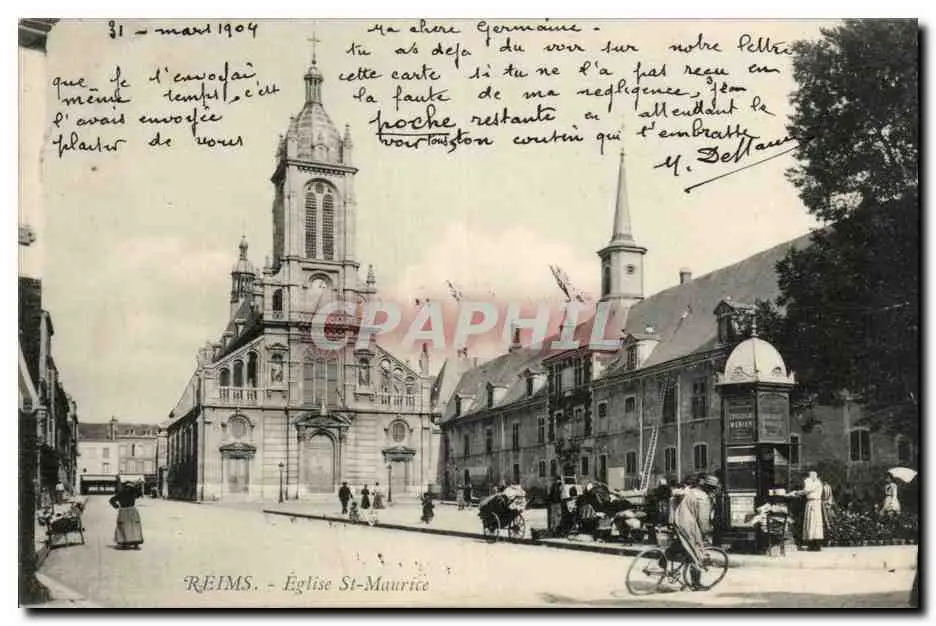 31 - mars 1904
Ma chère Germaine -
tu as deja du voir sur notre lettre
que je t'envoyai cette carte si tu ne l'a pas reçu en
même temps, c'est la faute de ma negligence, J'en
l'avais envoyée poche restante en attendant le
plaisir de vous voir tous, ton cousin qui t'embrasse
M.
CHOCOLAT
MENIER
CAPHIL
REIMS. - Église St-Maurice